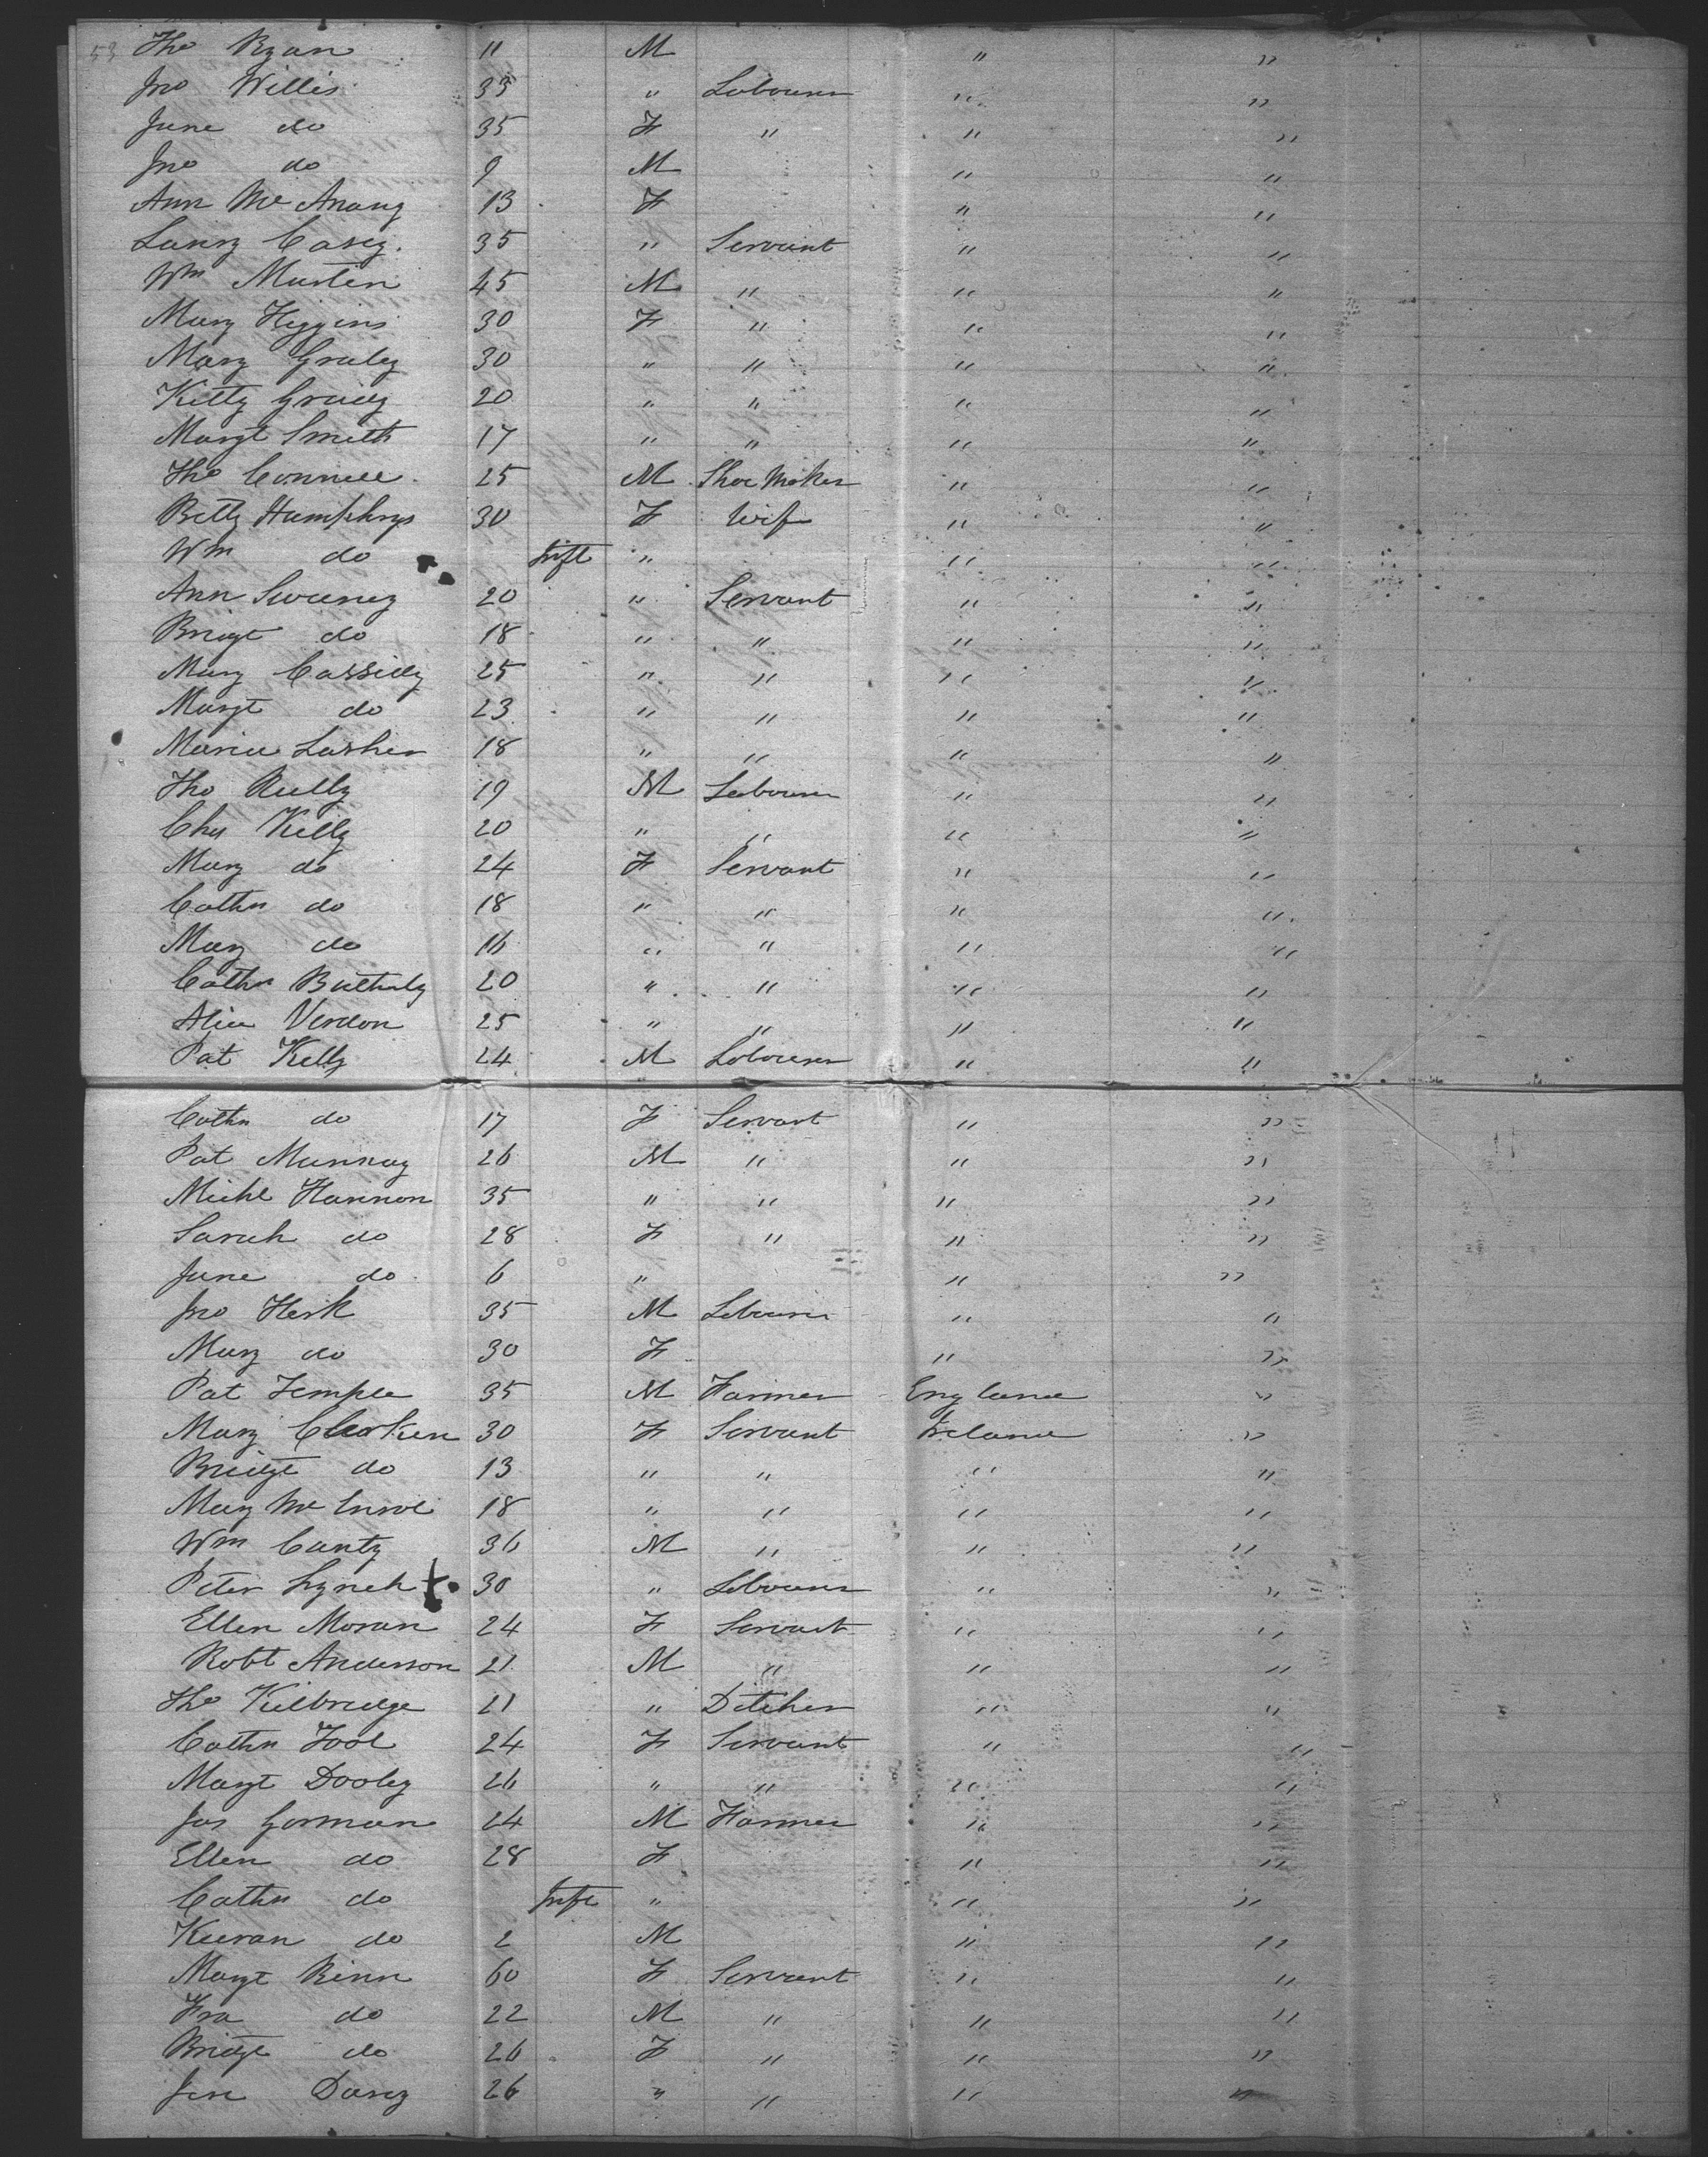 53 Tho Ryan 11 M " "
Jno Willis 35 " Labourer " "
Jane do 35 F " " "
Jno do 9 M " "
Ann Mc Anany 13 F " "
Casey 35 " Servant " "
Wm Martin 45 M " " "
Mary Higgins 30 F " " "
Mary 30 " " " "
Kitty 20 " " " "
Margt Smith 17 " " " "
Tho Connell 25 M Shoe Maker " "
Betty Humphrys 30 F Wife " "
Wm do Inft " " "
Ann Sweeney 20 " Servant " "
Bridgt do 18 " " " "
Mary Cassidy 25 " " " "
Margt do 23 " " " "
Maria 18 " " " "
Tho Reilly 19 M Labourer " "
Chs Kelly 20 " " " "
Mary do 24 F Servant " "
Cathn do 18 " " " "
Mary do 16 " " " "
Cathn 20 " " " "
Alice Verdon 25 " " " "
Pat Kelly 24 M Labourer " "
Cathn do 17 F Servant " "
Pat Murray 26 M " " "
Michl Hannon 35 " " " "
Sarah do 28 F " " "
Jane do 6 " " "
Jno 35 M Labourer " "
Mary do 30 F " "
Pat Temple 35 M Farmer England "
Mary Clarken 30 F Servant Ireland "
Bridgt do 13 " " " "
Mary Mc Enroe 18 " " " "
Wm Canty 36 M " " "
Peter Lynch 30 " Labourer " "
Ellen Moran 24 F Servant " "
Robt Anderson 21 M " " "
Tho Kilbridge 21 " Ditcher " "
Cathn Tool 24 F Servant " "
Margt Dooley 26 " " " "
Jas Gorman 24 M Farmer " "
Ellen do 28 F " "
Cathn do Inft " " "
Kieran do 2 M " "
Margt Binn 60 F Servant " "
Fra do 22 M " " "
Bridgt do 26 F " " "
Darcy 26 " " " "